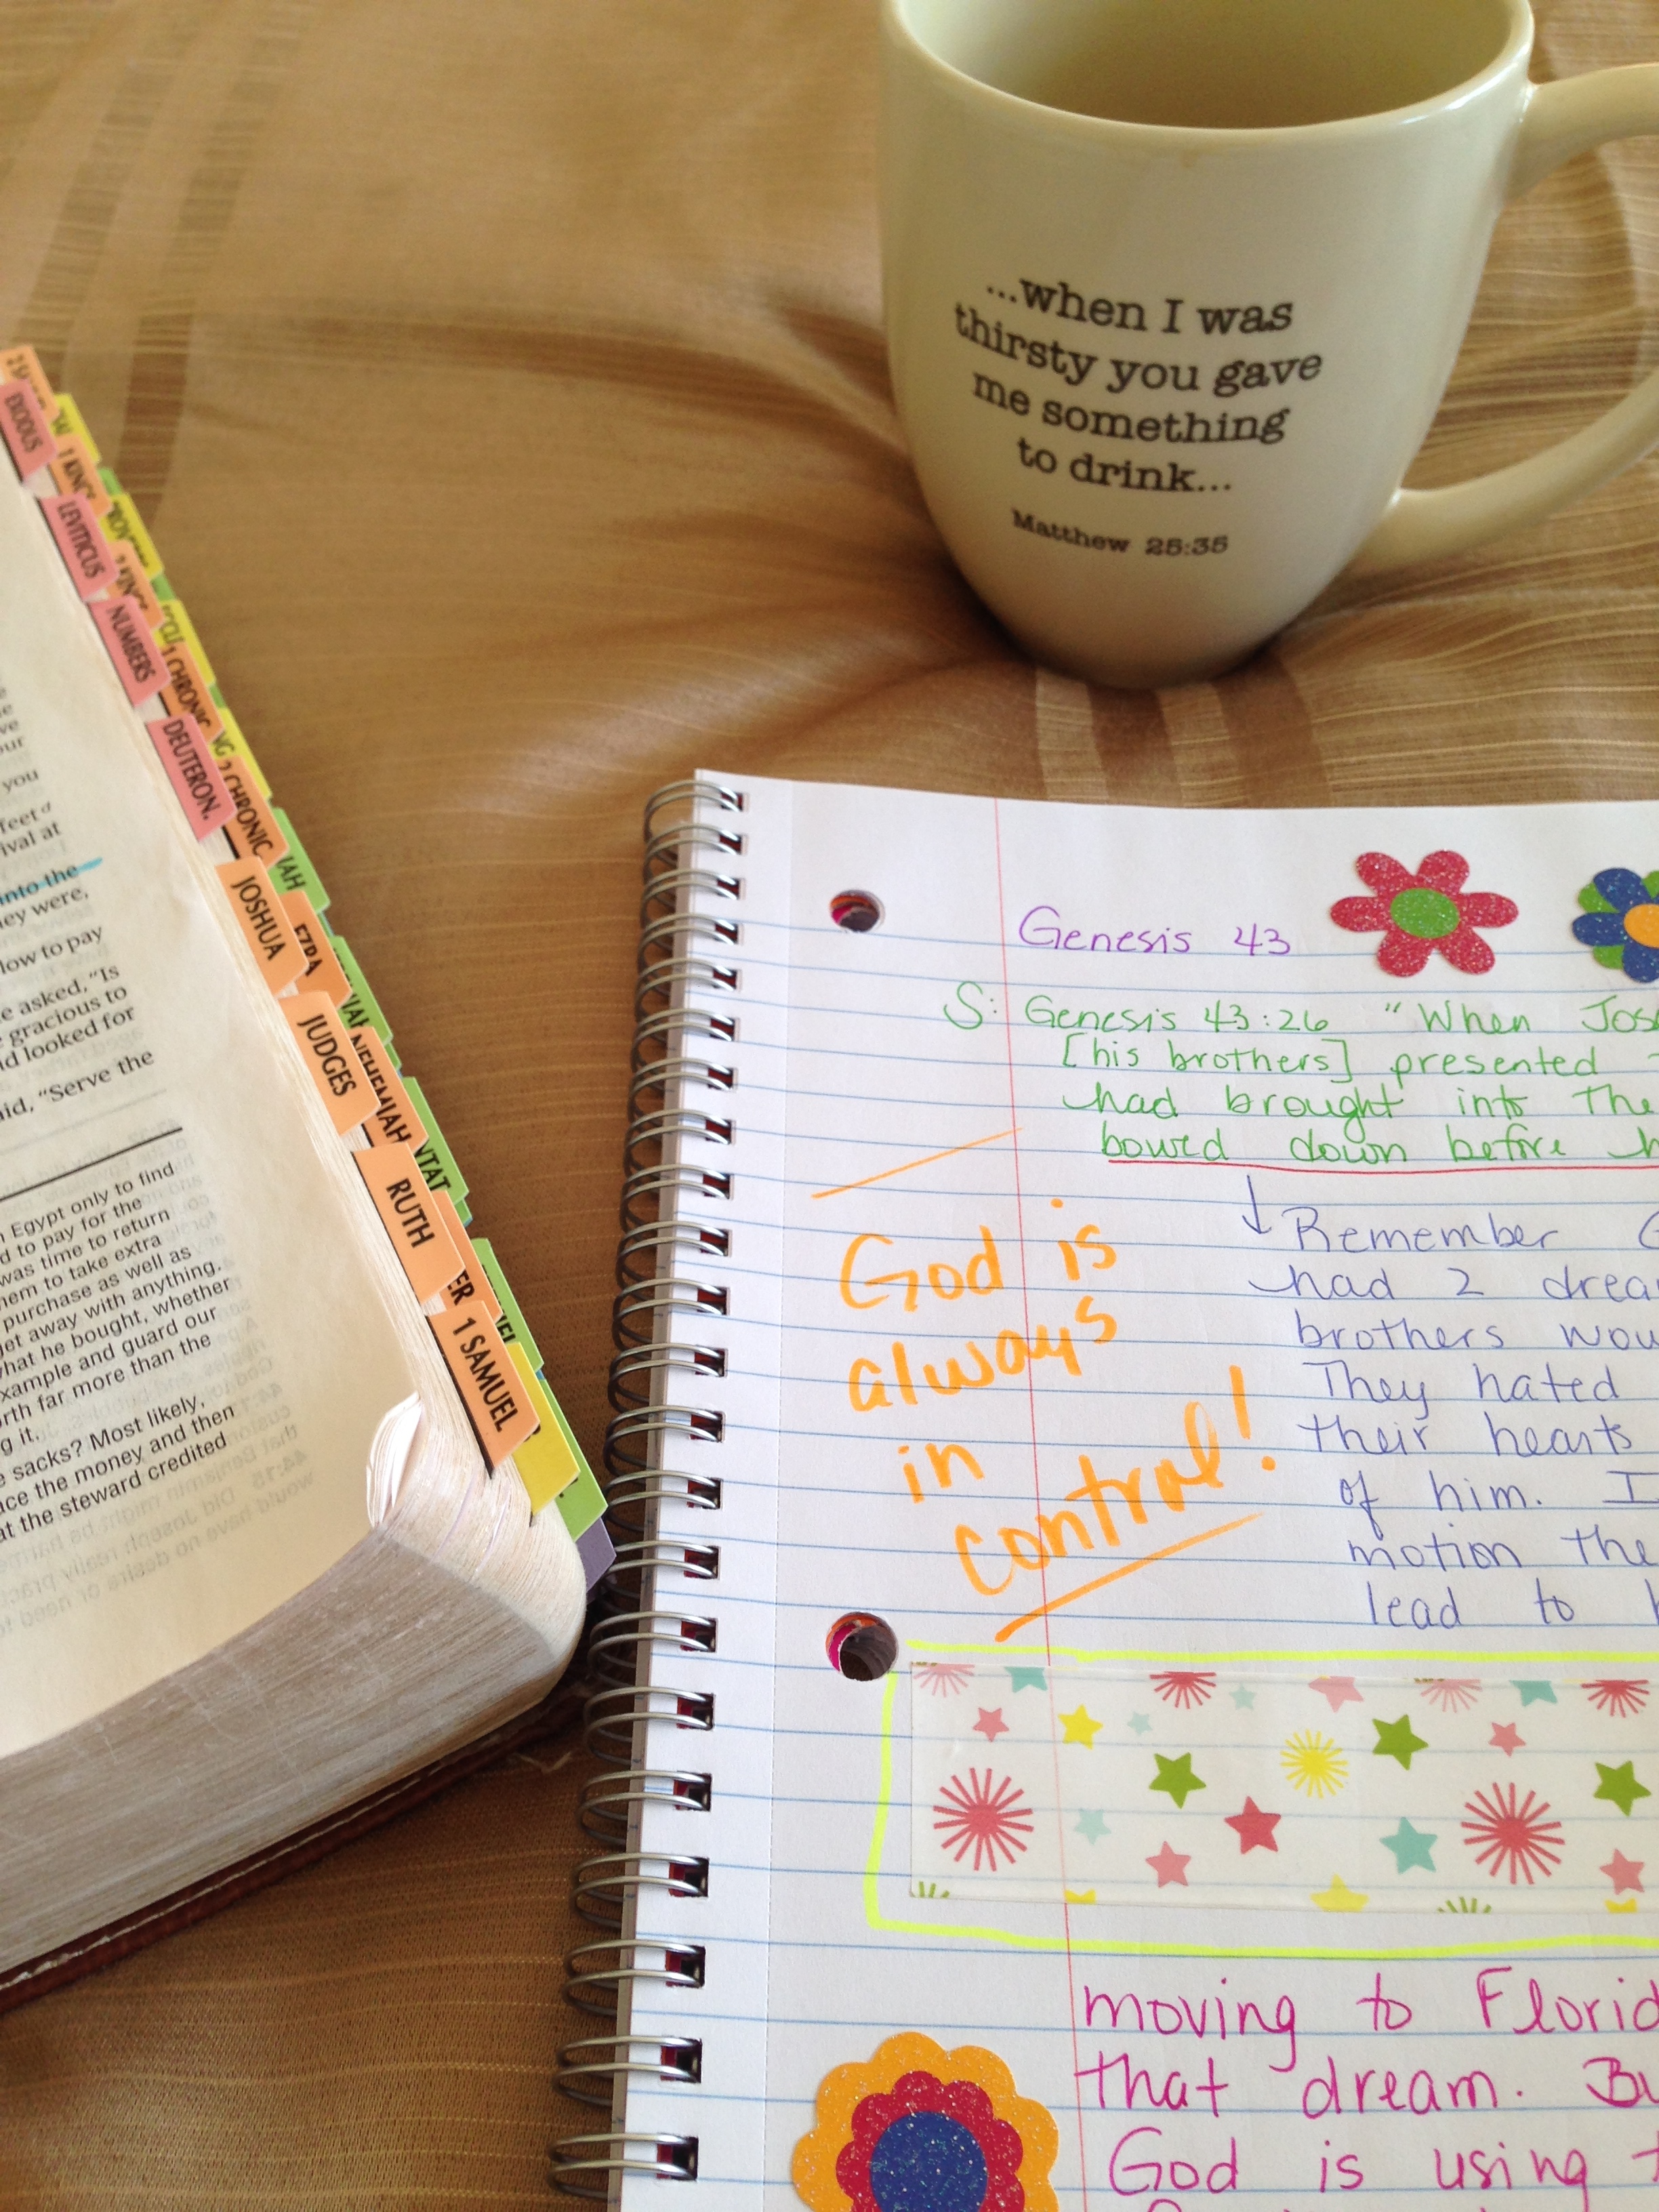 ...when I was
thirsty you gave
me something
to drink...
Matthew 25:35
EXODUS
LEVITICUS
NUMBERS
DEUTERON.
JOSHUA
JUDGES
RUTH
1 SAMUEL
1 CHRONIC
2 CHRONIC
EZRA
NEHEMIAH
you
feet
ival at
into the
ey were,
low to pay
e asked, "Is
gracious to
d looked for
aid, "Serve the
Egypt only to find
d to pay for the
was time to return
hem to take extra
purchase as well as
get away with anything.
what he bought, whether
example and guard our
rth far more than the
g it.
e sacks? Most likely,
ace the money and then
at the steward credited
Genesis 43
S: Genesis 43:26 "When Jos
[his brothers] presented
had brought into the
bowed down before h
Remember
had 2 drea
brothers wou
They hated
their hearts
of him. I
motion the
lead to
God is
always
in
control!
moving to Florid
that dream. Bu
God is using